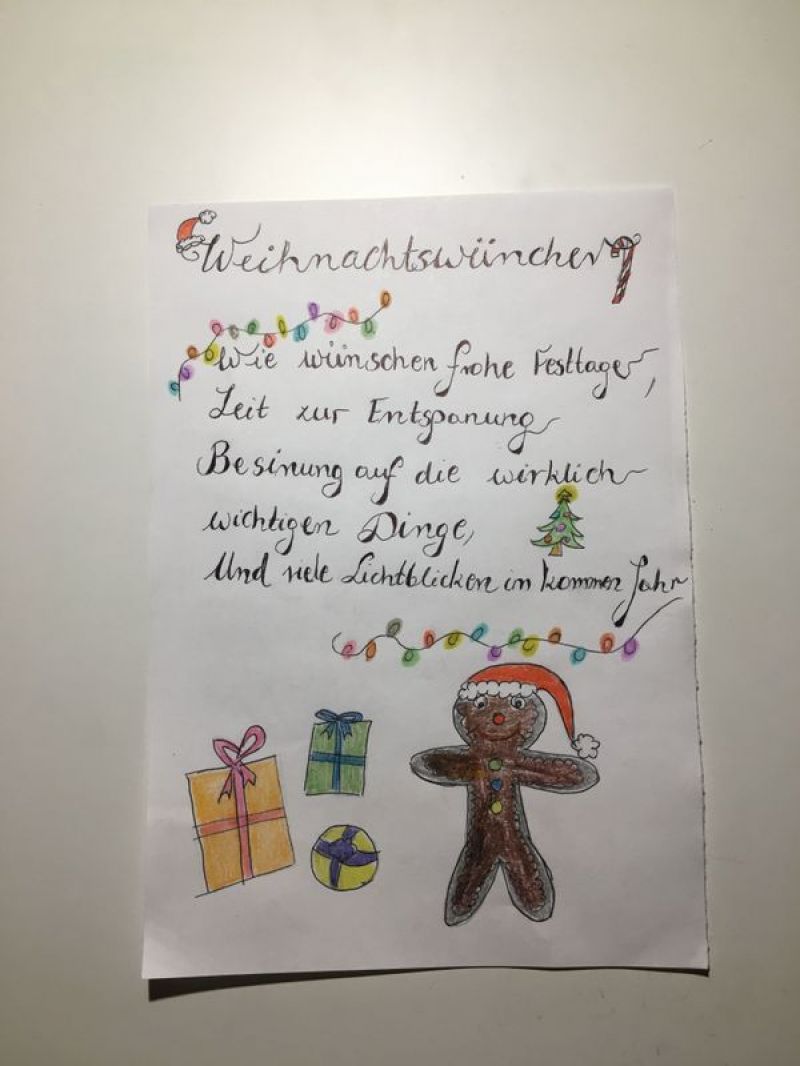 Weihnachtswünchen
Wie wünschen frohe Festtage,
Zeit zur Entspanung
Besinung auf die wirklich
wichtigen Dinge,
Und viele Lichtblicken im kommen Jahr